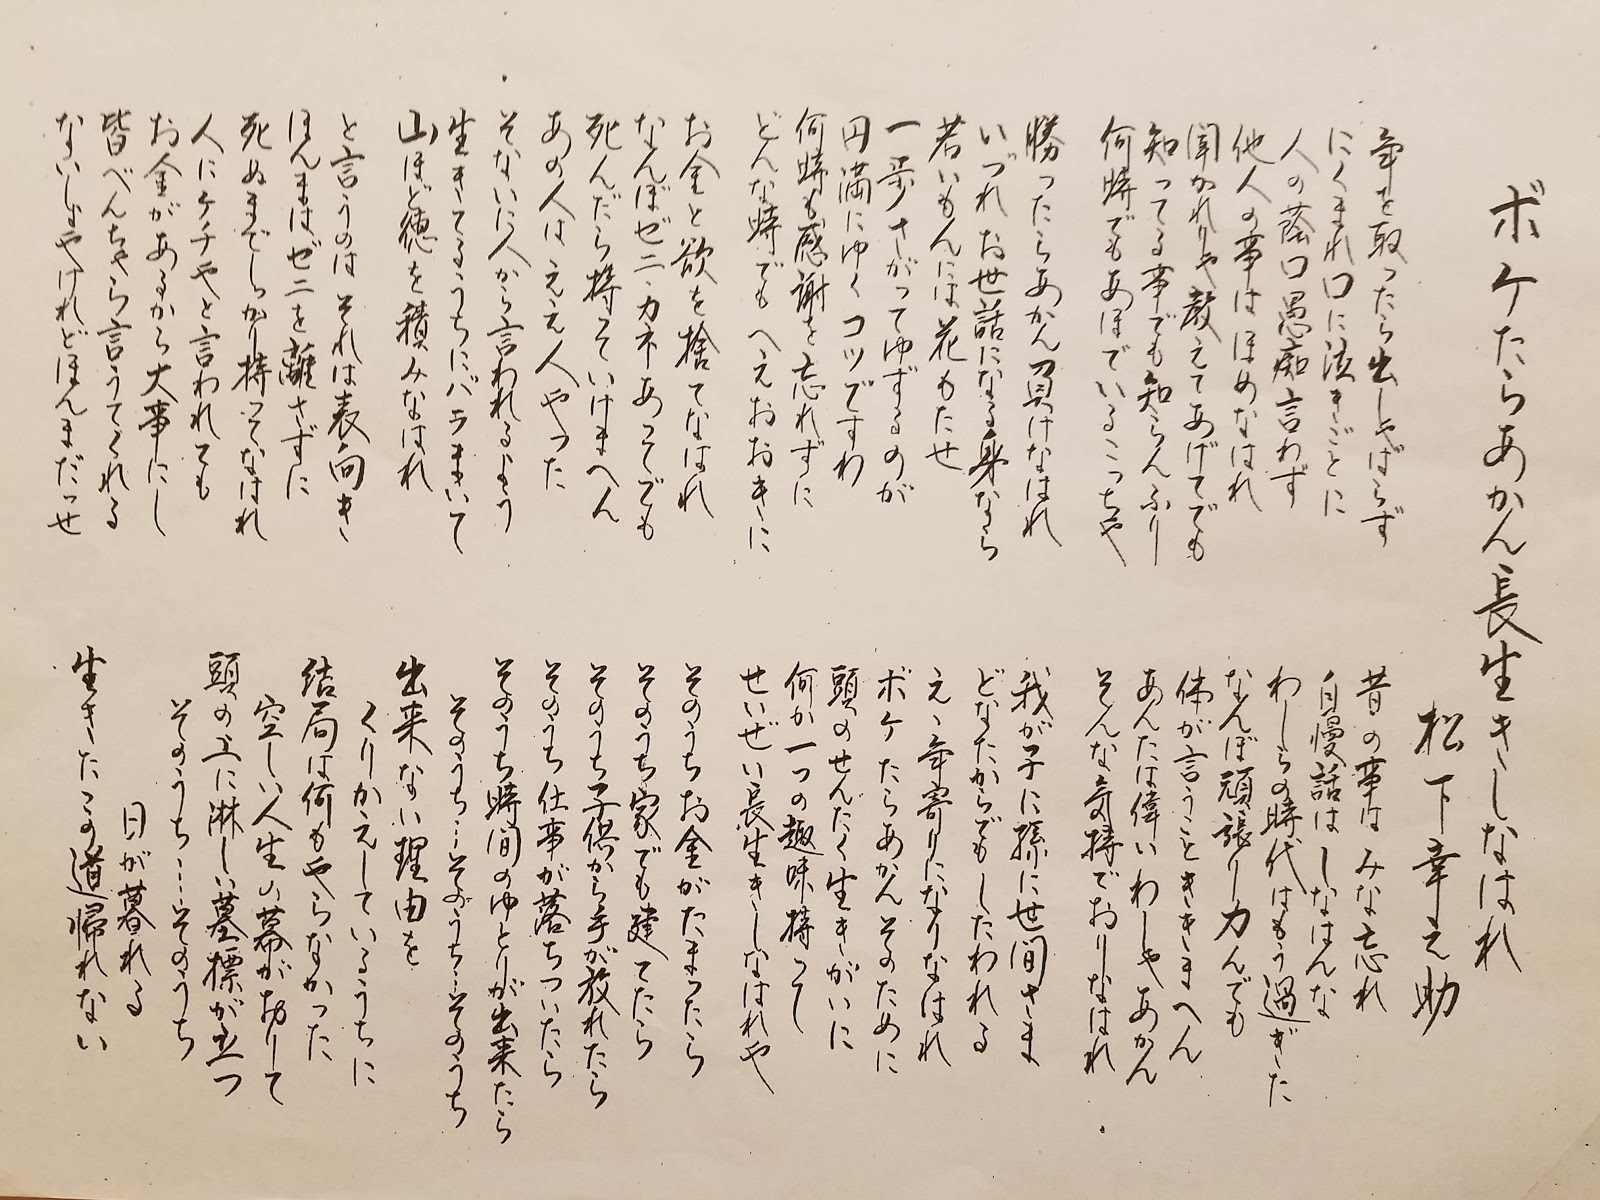 ボケたらあかん長生きしなはれ
松下幸之助
年を取ったら出しゃばらず
にくまれ口に泣きごとに
人の蔭口愚痴言わず
他人の事はほめなはれ
聞かれりゃ教えてあげてでも
知ってる事でも知らんふり
何時でもあほでいるこっちや
勝ったらあかん負けなはれ
いづれお世話になる身なら
若いもんには花もたせ
一歩さがってゆずるのが
円満にゆくコツですわ
何時も感謝を忘れずに
どんな時でもへえおおきに
お金と欲を捨てなはれ
なんぼゼニカネあってでも
死んだら持っていけまへん
あの人はええ人やった
そないに人から言われるよう
生きてるうちにバラまいて
山ほど徳を積みなはれ
と言うのはそれは表向き
ほんまはゼニを離さずに
死ぬまでしっかり持ってなはれ
人にケチやと言われても
お金があるから大事にし
皆べんちゃら言うてくれる
ないしょやけれどほんまだっせ
昔の事はみな忘れ
自慢話はしなはんな
わしらの時代はもう過ぎた
なんぼ頑張り力んでも
体が言うことききまへん
あんたは偉いわしゃあかん
そんな気持でおりなはれ
我が子に孫に世間さま
どなたからでもしたわれる
えゝ年寄りになりなはれ
ボケたらあかんそのために
頭のせんたく生きがいに
何か一つの趣味持って
せいぜい長生きしなはれや
そのうちお金がたまったら
そのうち家でも建てたら
そのうち子供から手が放れたら
そのうち仕事が落ちついたら
そのうち時間のゆとりが出来たら
そのうち…そのうち…そのうち
出来ない理由を
くりかえしているうちに
結局は何もやらなかった
空しい人生の幕がおりて
頭の上に淋しい墓標が立つ
そのうち……そのうち
日が暮れる
生きたこの道帰れない